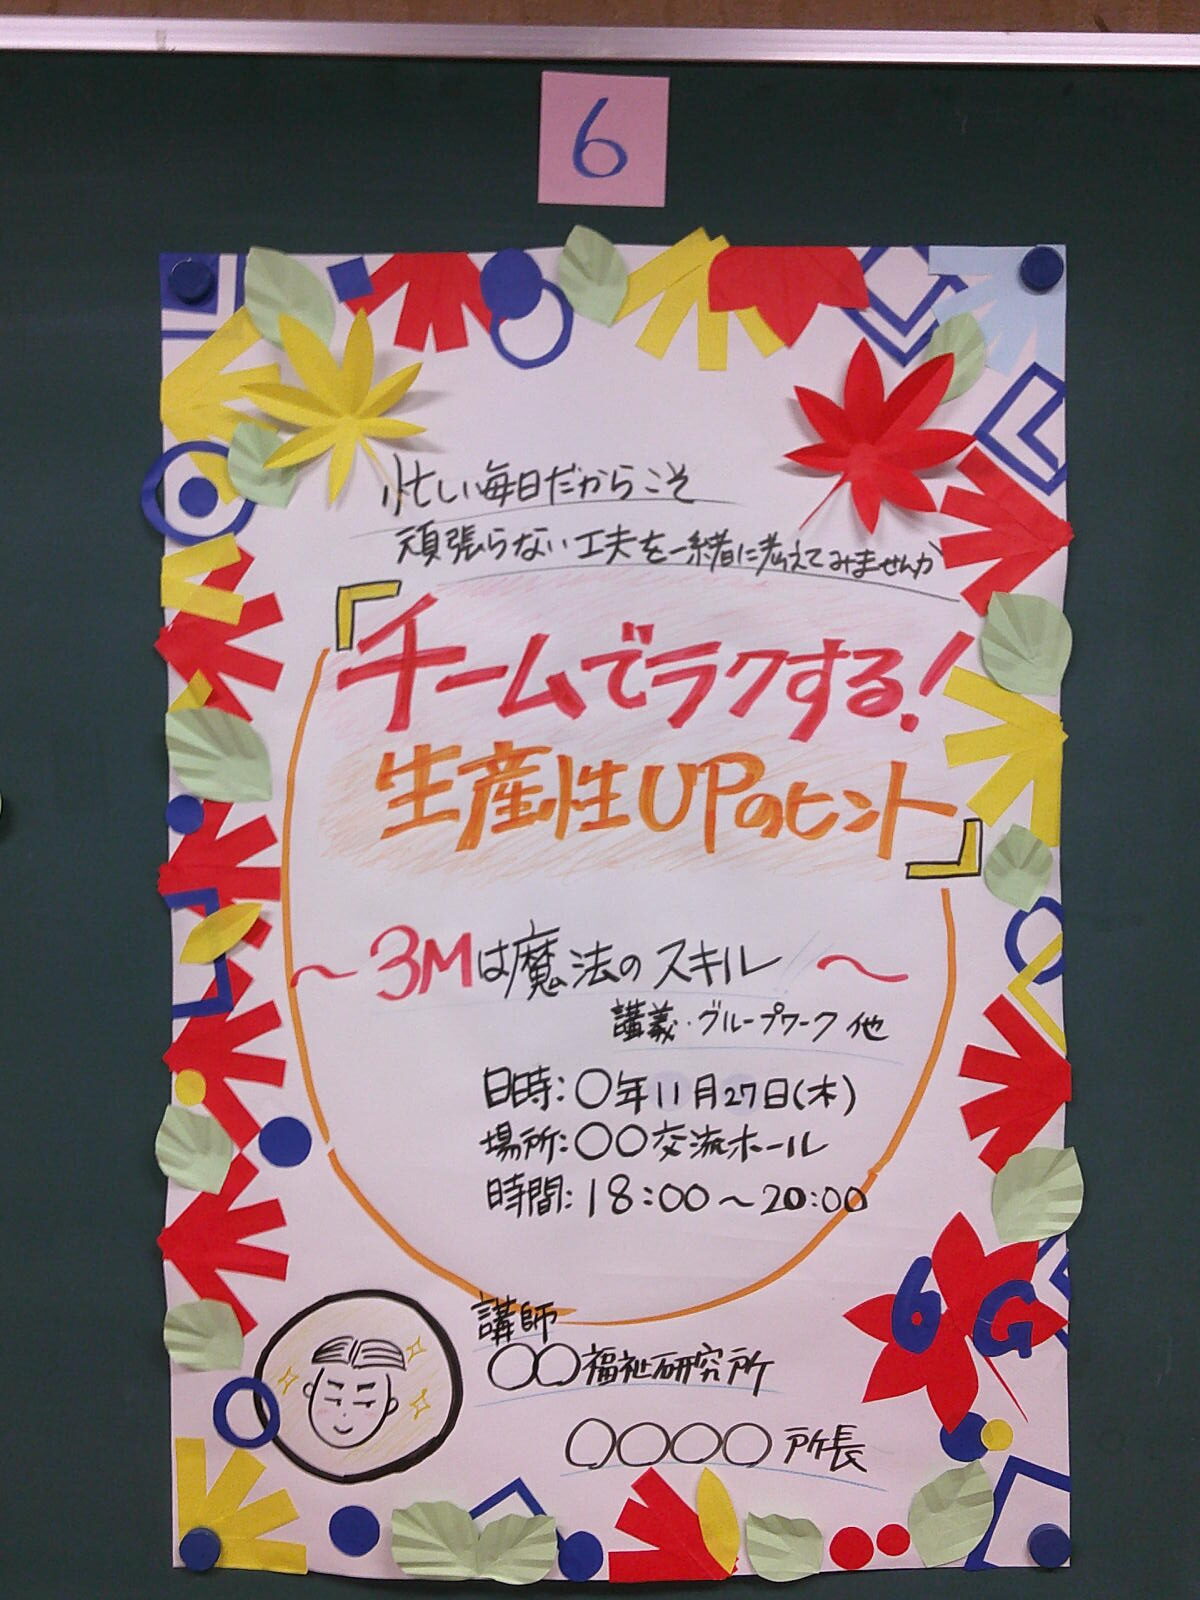 6
忙しい毎日だからこそ
頑張らない工夫を一緒に考えてみませんか
『チームでラクする!
生産性UPのヒント』
～3Mは魔法のスキル～
講義・グループワーク 他
日時:〇年11月27日(木)
場所:〇〇交流ホール
時間:18:00～20:00
講師
〇〇福祉研究所
〇〇〇〇所長
6G